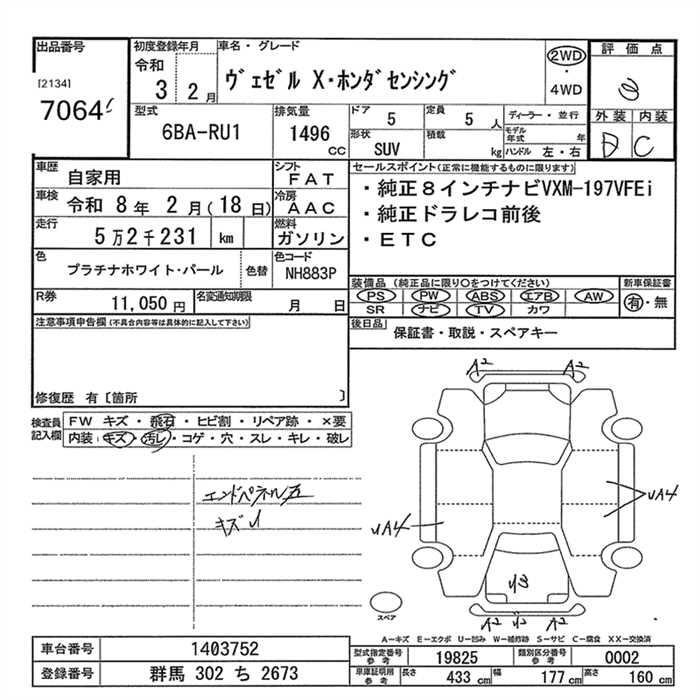 出品番号
[2134]
7064
初度登録年月
令和
3 2月
車名・グレード
ヴェゼル X・ホンダセンシング
2WD
・
4WD
評価点
外装 内装
C
型式
6BA-RU1
排気量
1496
CC
ドア
5
定員
5 人
ディーラー・並行
モデル年式 年
形状
SUV
積載
kg
ハンドル 左・右
車歴
自家用
シフト
FAT
車検
令和 8年 2月(18日)
冷房
AAC
走行
5万2千231 km
燃料
ガソリン
色
プラチナホワイト・パール
色替
色コード
NH883P
R券
11,050円
名変通知期限
月 日
セールスポイント(正常に機能するものに限ります)
・純正8インチナビVXM-197VFEi
・純正ドラレコ前後
・ETC
装備品 (純正品に限り〇をつけてください)
新車保証書
PS PW ABS エアB AW
有・無
SR ナビ TV カワ
後日品
保証書・取説・スペアキー
注意事項申告欄(不具合内容等は具体的に記入して下さい)
修復歴 有〔箇所 〕
検査員記入欄
FW キズ・飛石・ヒビ割・リペア跡・×要
内装:キズ・汚レ・コゲ・穴・スレ・キレ・破レ
キズ
A2 A2
UA4 UA4
U3
A2 A2
スペア
A―キズ E―エクボ U―凹み W―補修跡 S―サビ C―腐食 XX―交換済
車台番号
1403752
登録番号
群馬 302 ち 2673
型式指定番号
参考
19825
類別区分番号
参考
0002
車庫証明用
参考
長さ 433 cm 幅 177 cm 高さ 160 cm